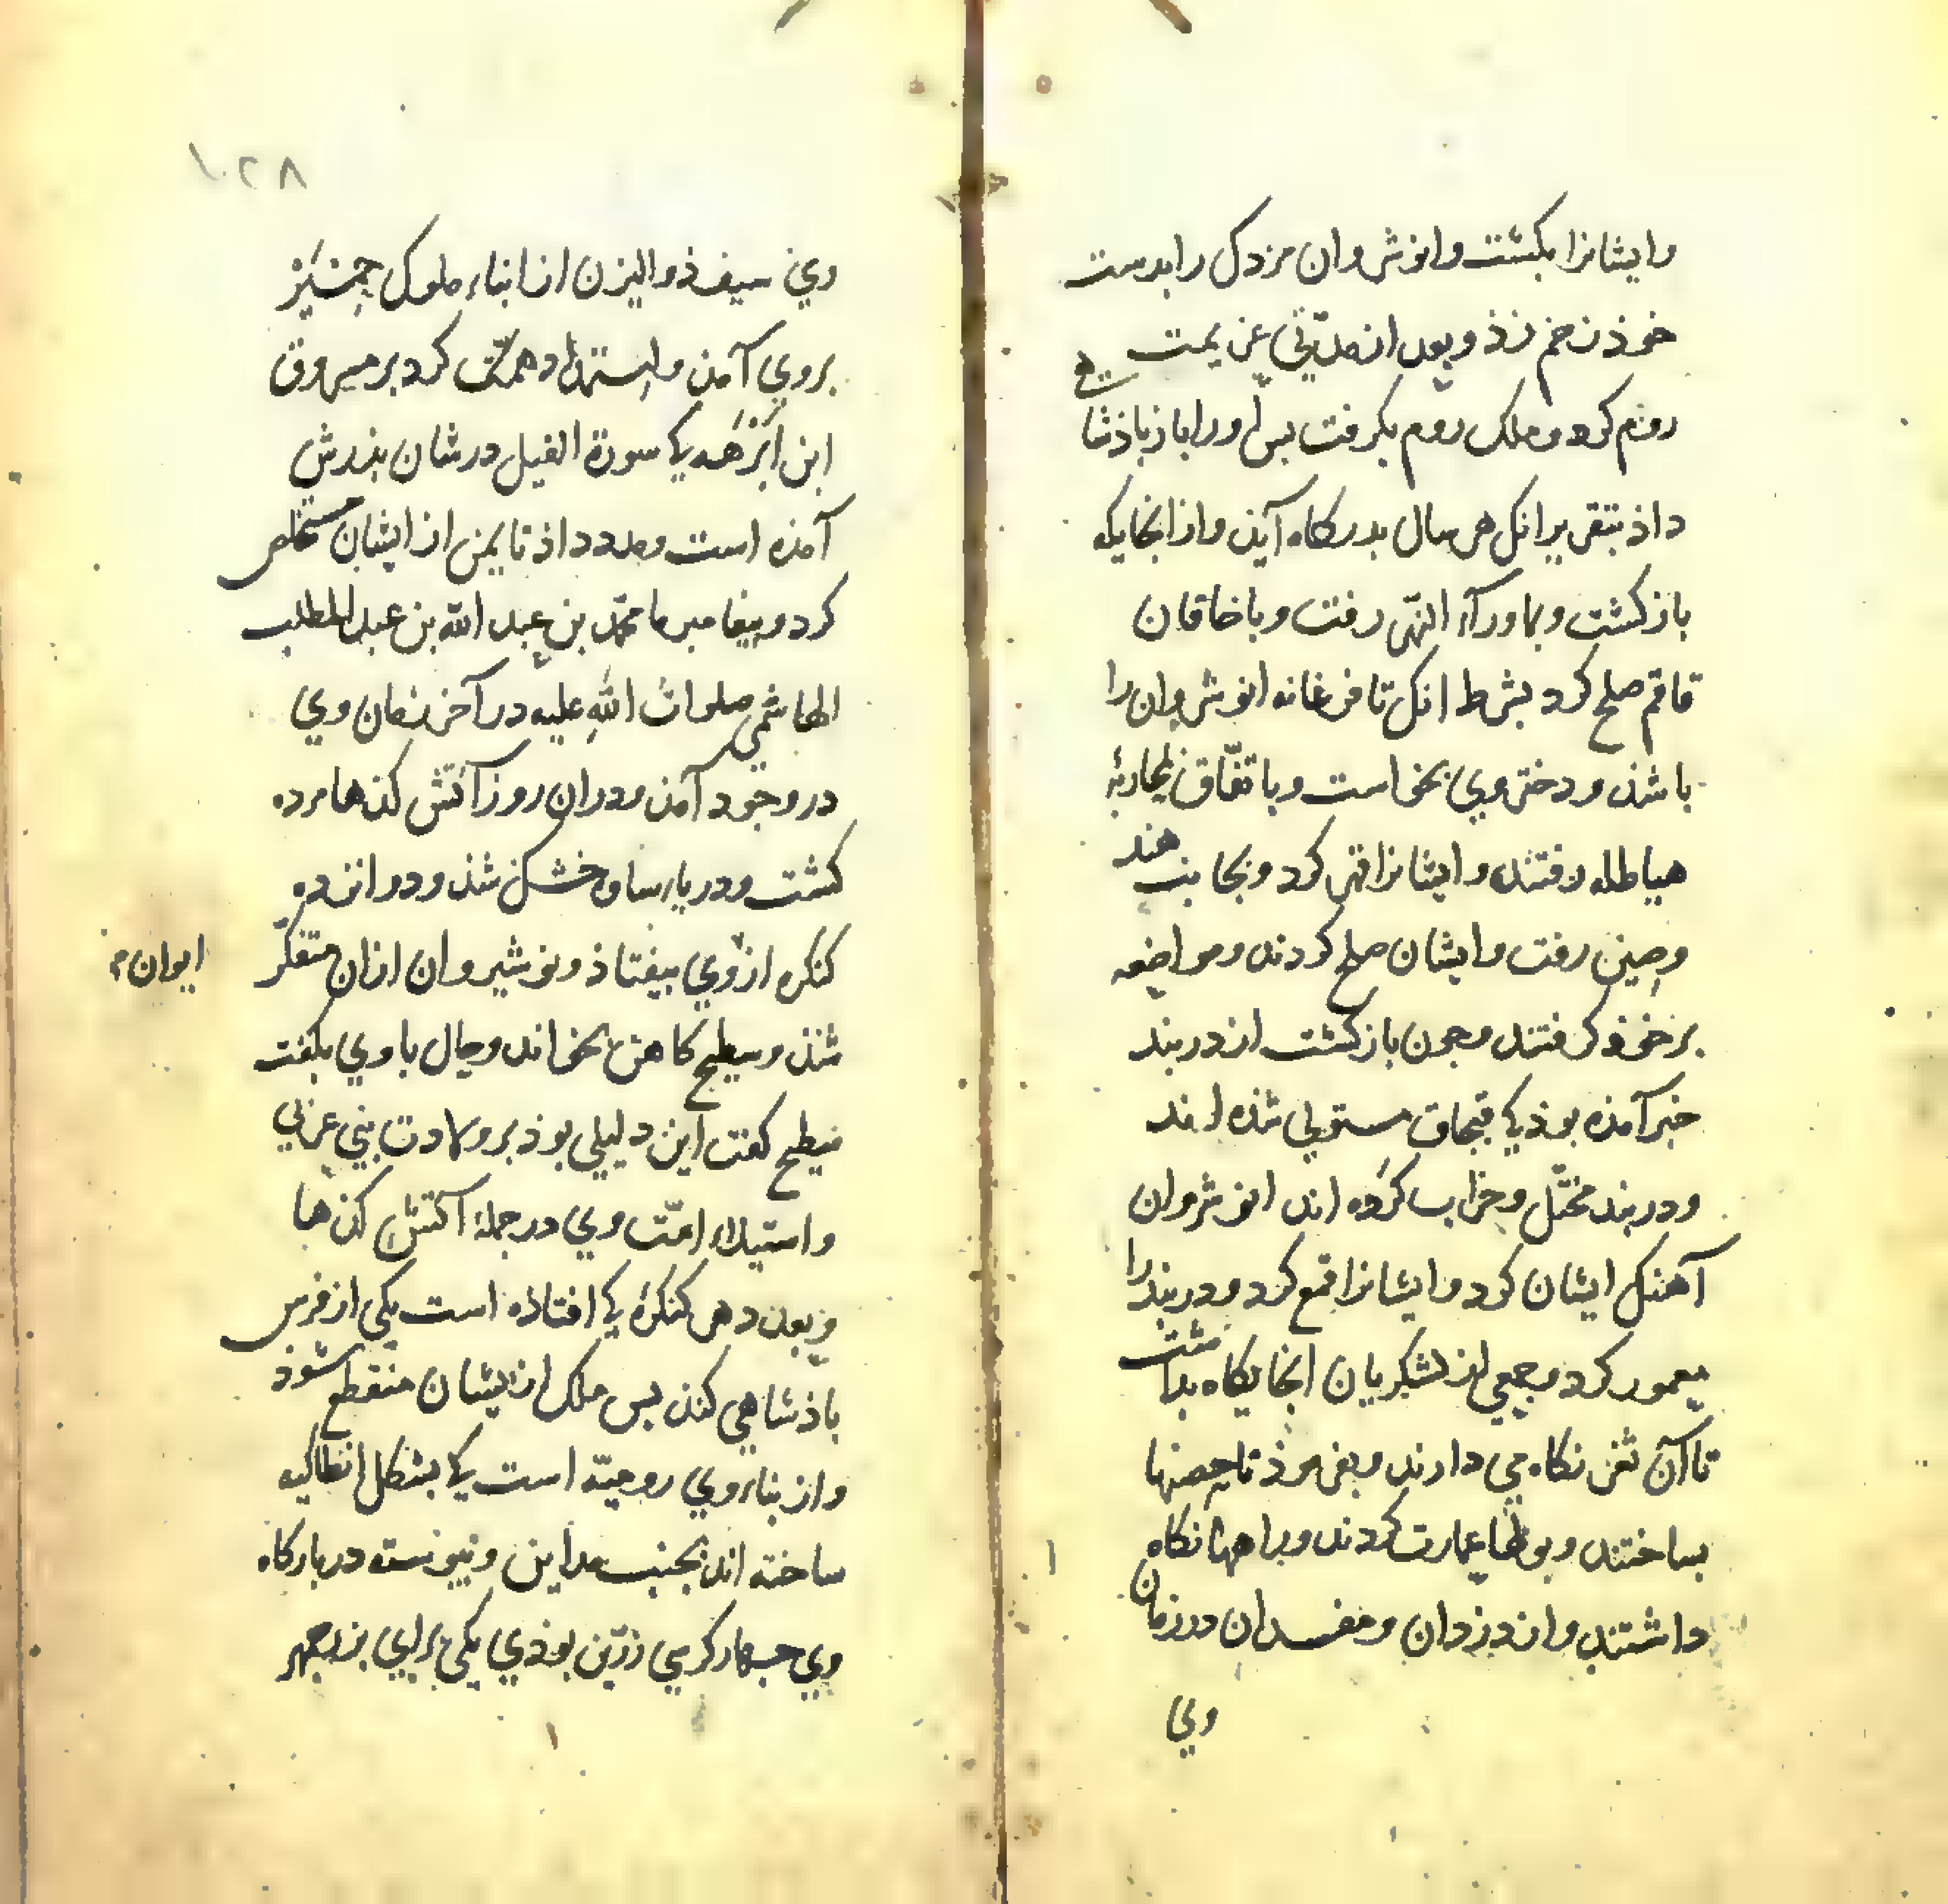 وایشانرا بکشت وانوشروان مزدک را بدست
خوذ زخم زذ وبعد از مدّتي عزیمت
روم کرد وملک روم بکرفت بس اورا باز باذشا هي
داذ بتقریر انک هر سال بدرکاه آیذ واز انجایکه
باز کشت وبماورآء النهر رفت وبا خاقان
قاقم صلح کرد بشرط انک تا فرغانه انوشروان را
باشذ ودختر وي بخواست وباتفّاق بمحاربۀ
هیاطله رفتند وایشانرا قهر کرد وبجانب هند
وصین رفت وایشان صلح کردند ومواضعه
برخوذ کرفتند وجون باز کشت از دربند
خبر آمذه بوذ کی قبجاق مستولي شذه اند
ودربند مختّل وخراب کرده اند انوشروان
آهنک ایشان کرد وایشانرا قمع کرد ودربند را
معمور کرد وجمعي از لشکریان انجایکاه بداشت
تا آن ثغر نکاه مي دارند وبفرموذ تا حصنها
بساختند وبوطها عمارت کردند وراهها نکاه
داشتند واز دزدان ومفسدان در زمان
وي
۸۲۰۱
وي سیف ذو الیزن از ابناء ملوک حمیر
بروي آمذ واستمداد همکّت کرد بر مسروق
ابن ابرهه کی سورة الفیل در شان بذرش
آمذه است ومدد داذ تا یمن از ایشان مستخلص
کرد وبیغامبر ما محمّد بن عبد الله بن عبد المطلب
الهاشمي صلوات الله علیه در آخر زمان وي
در وجود آمذ ودران روز آتش کذها مرده
کشت ودریاء ساوه خشک شذ ودوانزده
کنکره از وي بیفتاذ ونوشیروان ازان متفکّر
ایوان
شذ وسطیح کاهن بخواند وحال با وي بکفت
سطیح کفت این دلیلي بوذ بر ولادت نبي عربي
واستیلاء امّت وي در جملۀ آکتش کذها
وبعدد هر کنکرۀ کی افتاذه است یکي از فرس
باذشاهي کند بس ملک از یشان منقطع شوذ
واز بناء وي رومیّه است کی بشکل انطاکیه
ساخته اند بجنب مداین وبیوسته در بارکاه
وي جهار کرسي زرّین بوذي یکي براي بزرجمهر